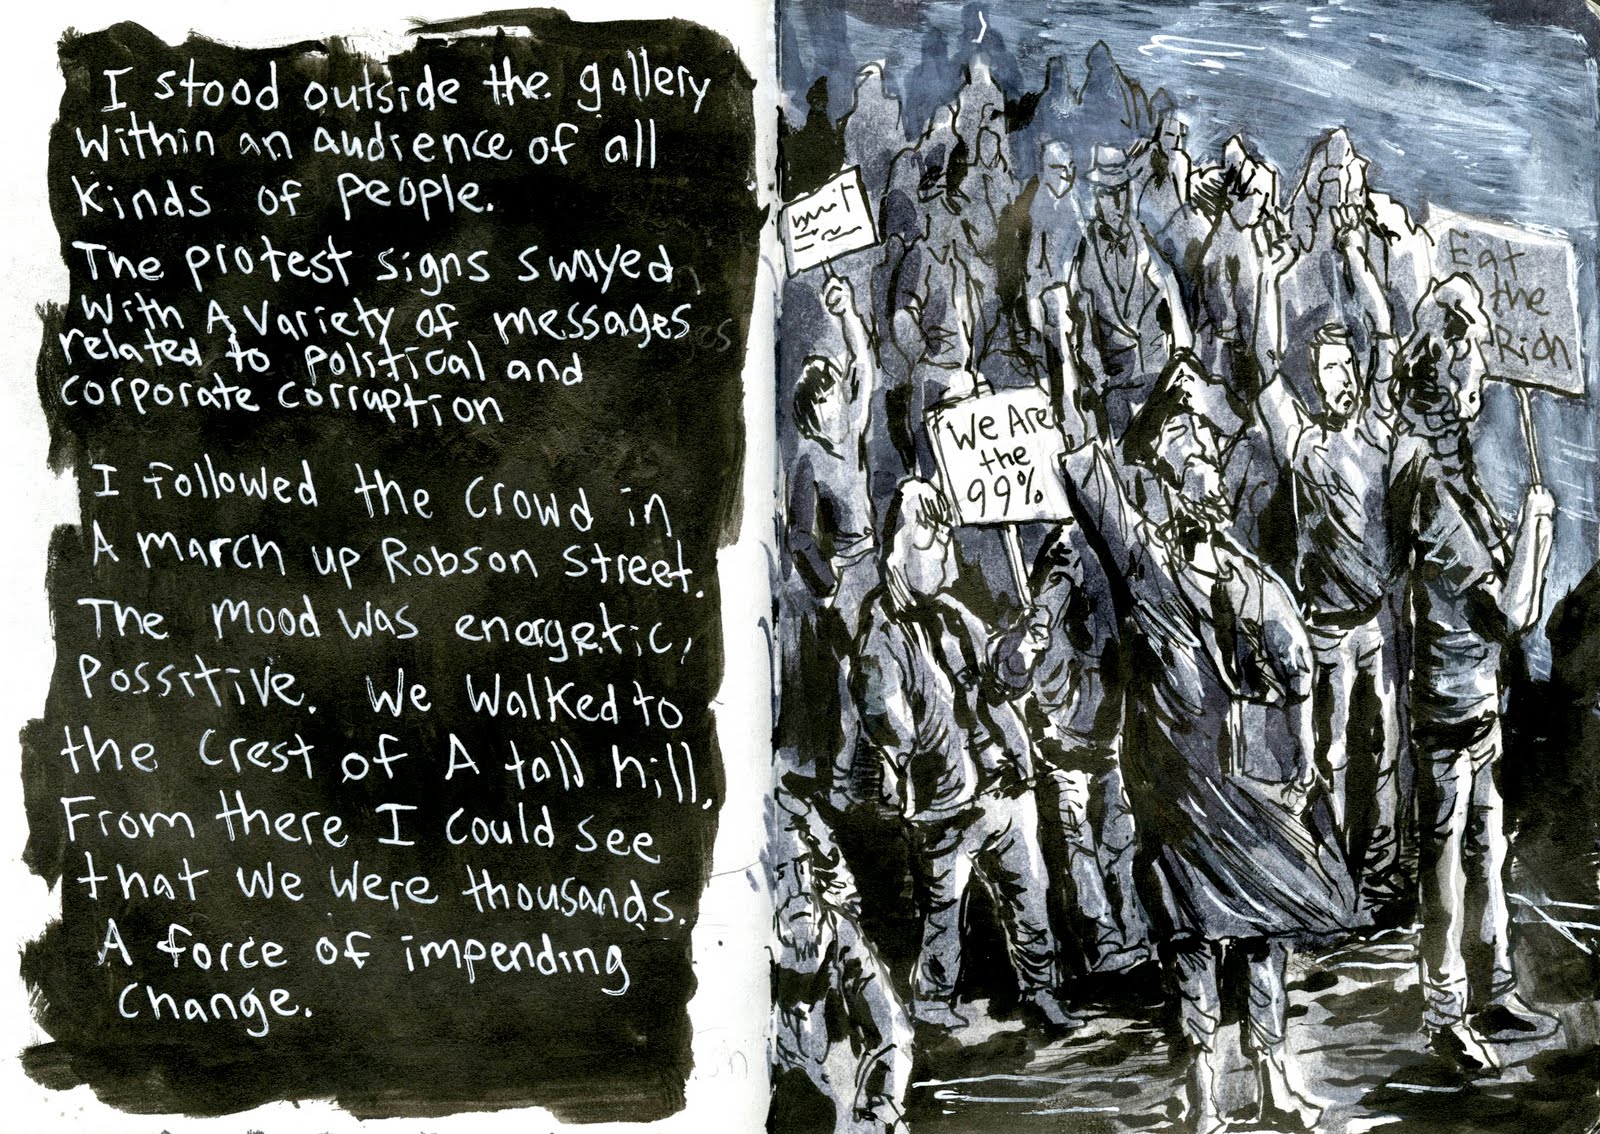 I stood outside the gallery
within an audience of all
kinds of people.
The protest signs swayed
with A variety of messages
related to political and
corporate corruption
I followed the crowd in
A march up Robson Street.
The mood was energetic,
possitive. We walked to
the crest of A tall hill.
From there I could see
that we were thousands.
A force of impending
change.
We Are
the
99%
Eat
the
Rich